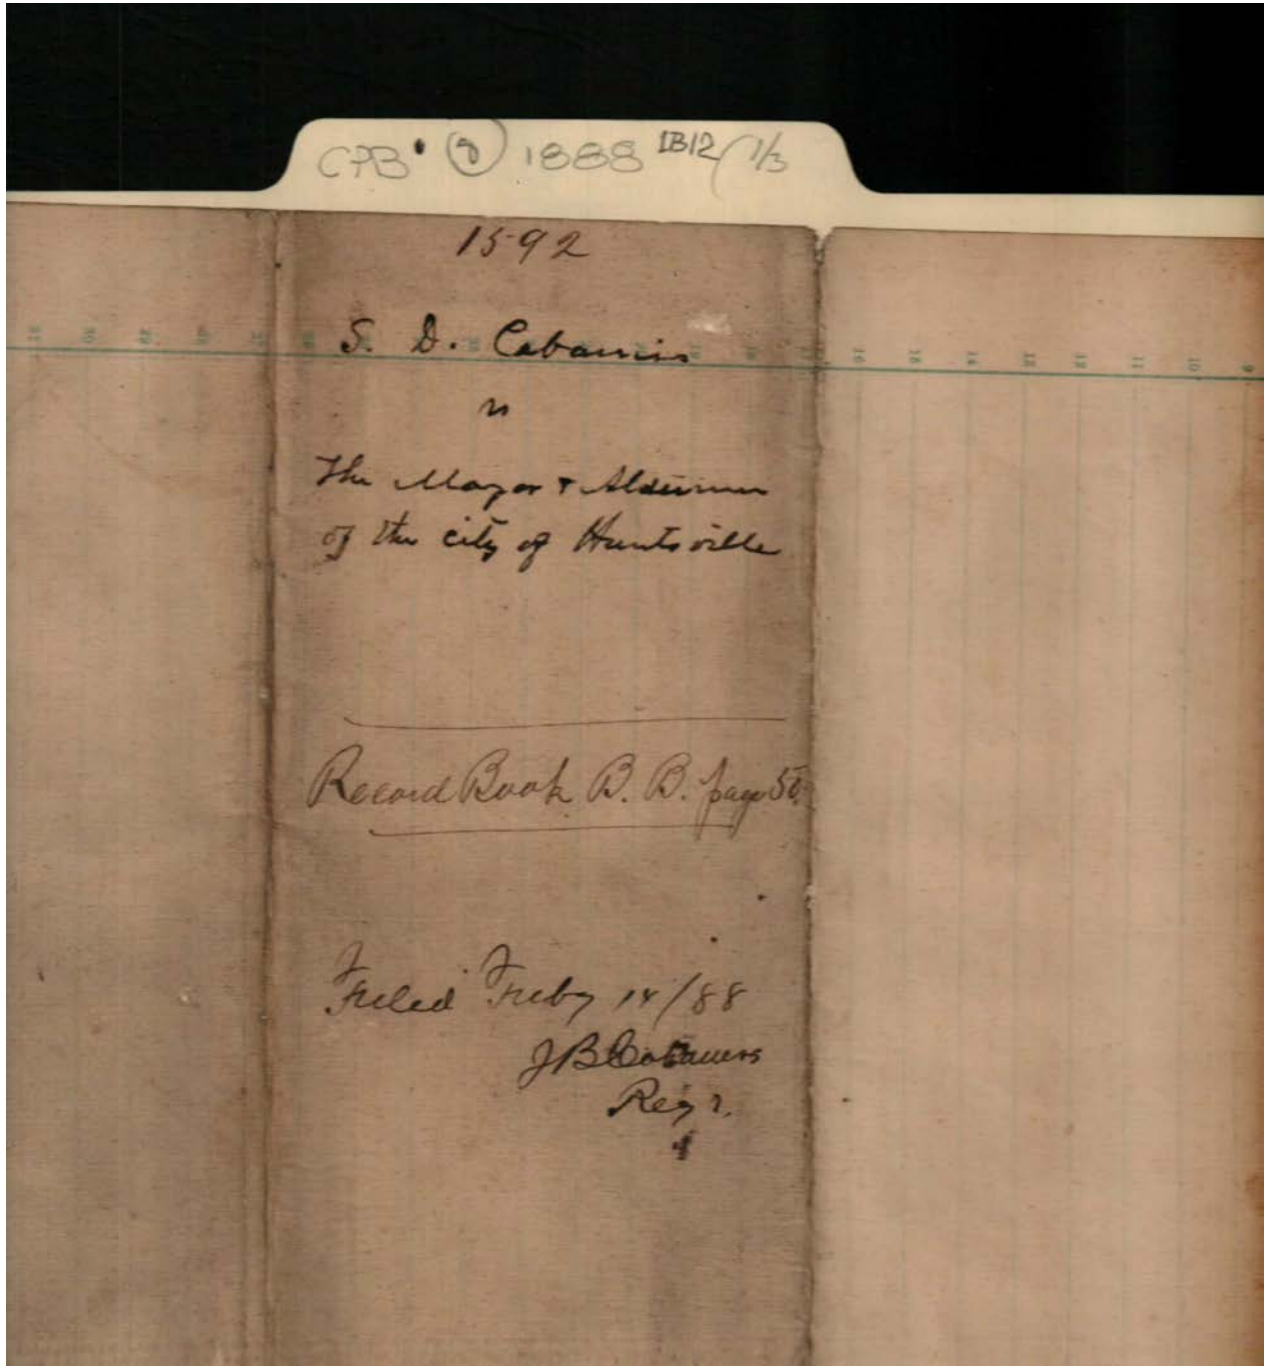 CPB 8 1888 IB12 1/3
1592
S. D. Cabaniss
vs
The Mayor & Aldermen
of the city of Huntsville
Record Book B. B. page 50
Filed Feby 14/88
J B
Regr.